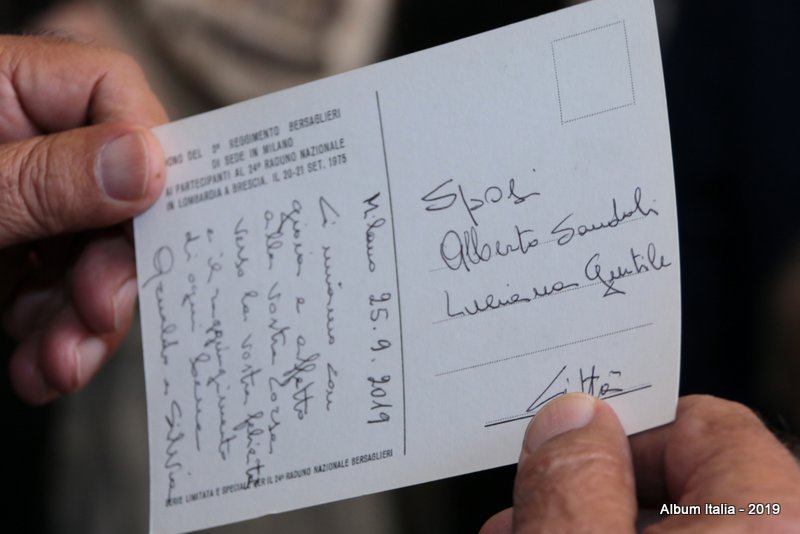 DONO DEL 3° REGGIMENTO BERSAGLIERI
DI SEDE IN MILANO
AI PARTECIPANTI AL 24° RADUNO NAZIONALE
IN LOMBARDIA A BRESCIA. IL 20-21 SET. 1975
Milano 25.9.2019
Ci uniamo con
gioia e affetto
alla vostra corsa
verso la vostra felicità
e il raggiungimento
di ogni bene
Silvia
SERIE LIMITATA E SPECIALE PER IL 24° RADUNO NAZIONALE BERSAGLIERI
Sposi
Alberto Sandoli
Luciana Gentile
Città
Album Italia - 2019